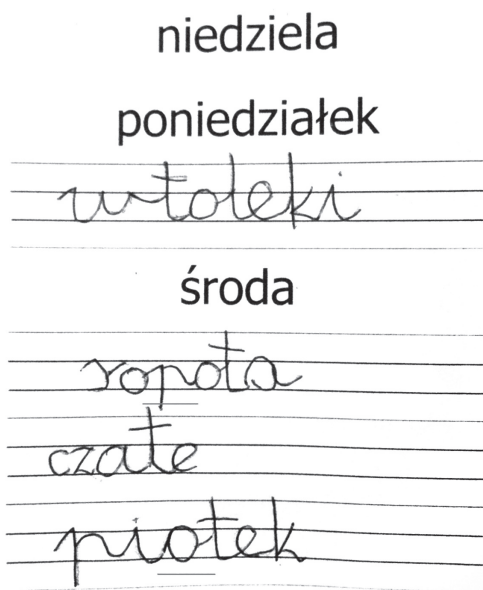 niedziela
poniedziałek
wtoleki
środa
sopota
czate
piotek